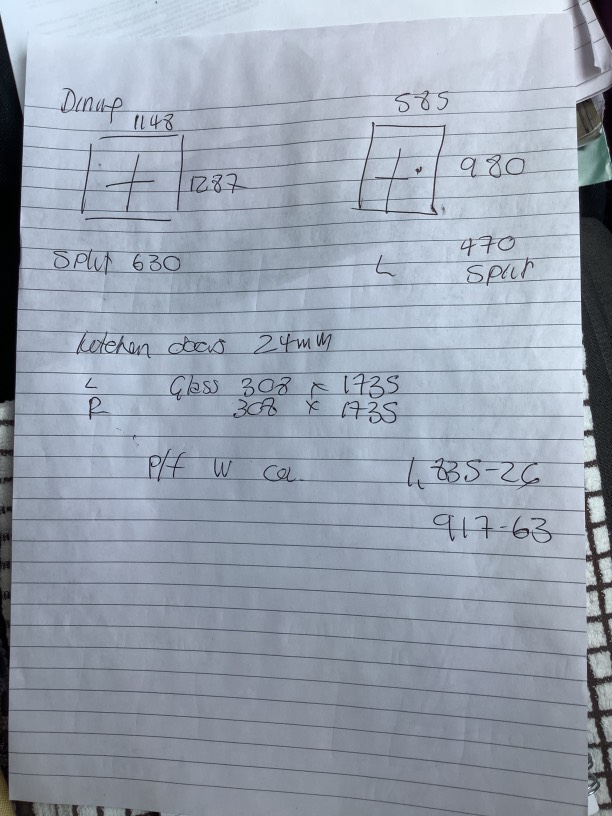 1148
585
1287
980
Split 630
L
470
Split
Kitchen doors 24mm
L Glass 308 x 1735
R 308 x 1735
P/f W col.
1,835-26
917-63